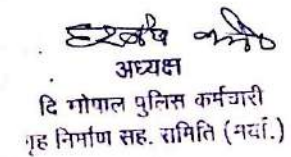 अध्यक्ष
दि गोपाल पुलिस कर्मचारी
गृह निर्माण सह. समिति (मर्या.)